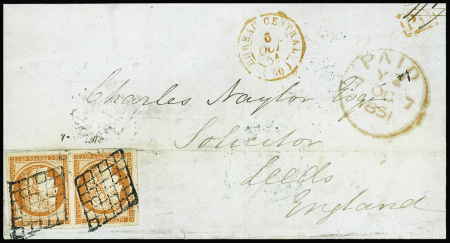 BUREAU CENTRAL
6
OCT
51
(60)
PAID
OC 7
1851
Charles Naylor Esqr
Solicitor
Leeds
England